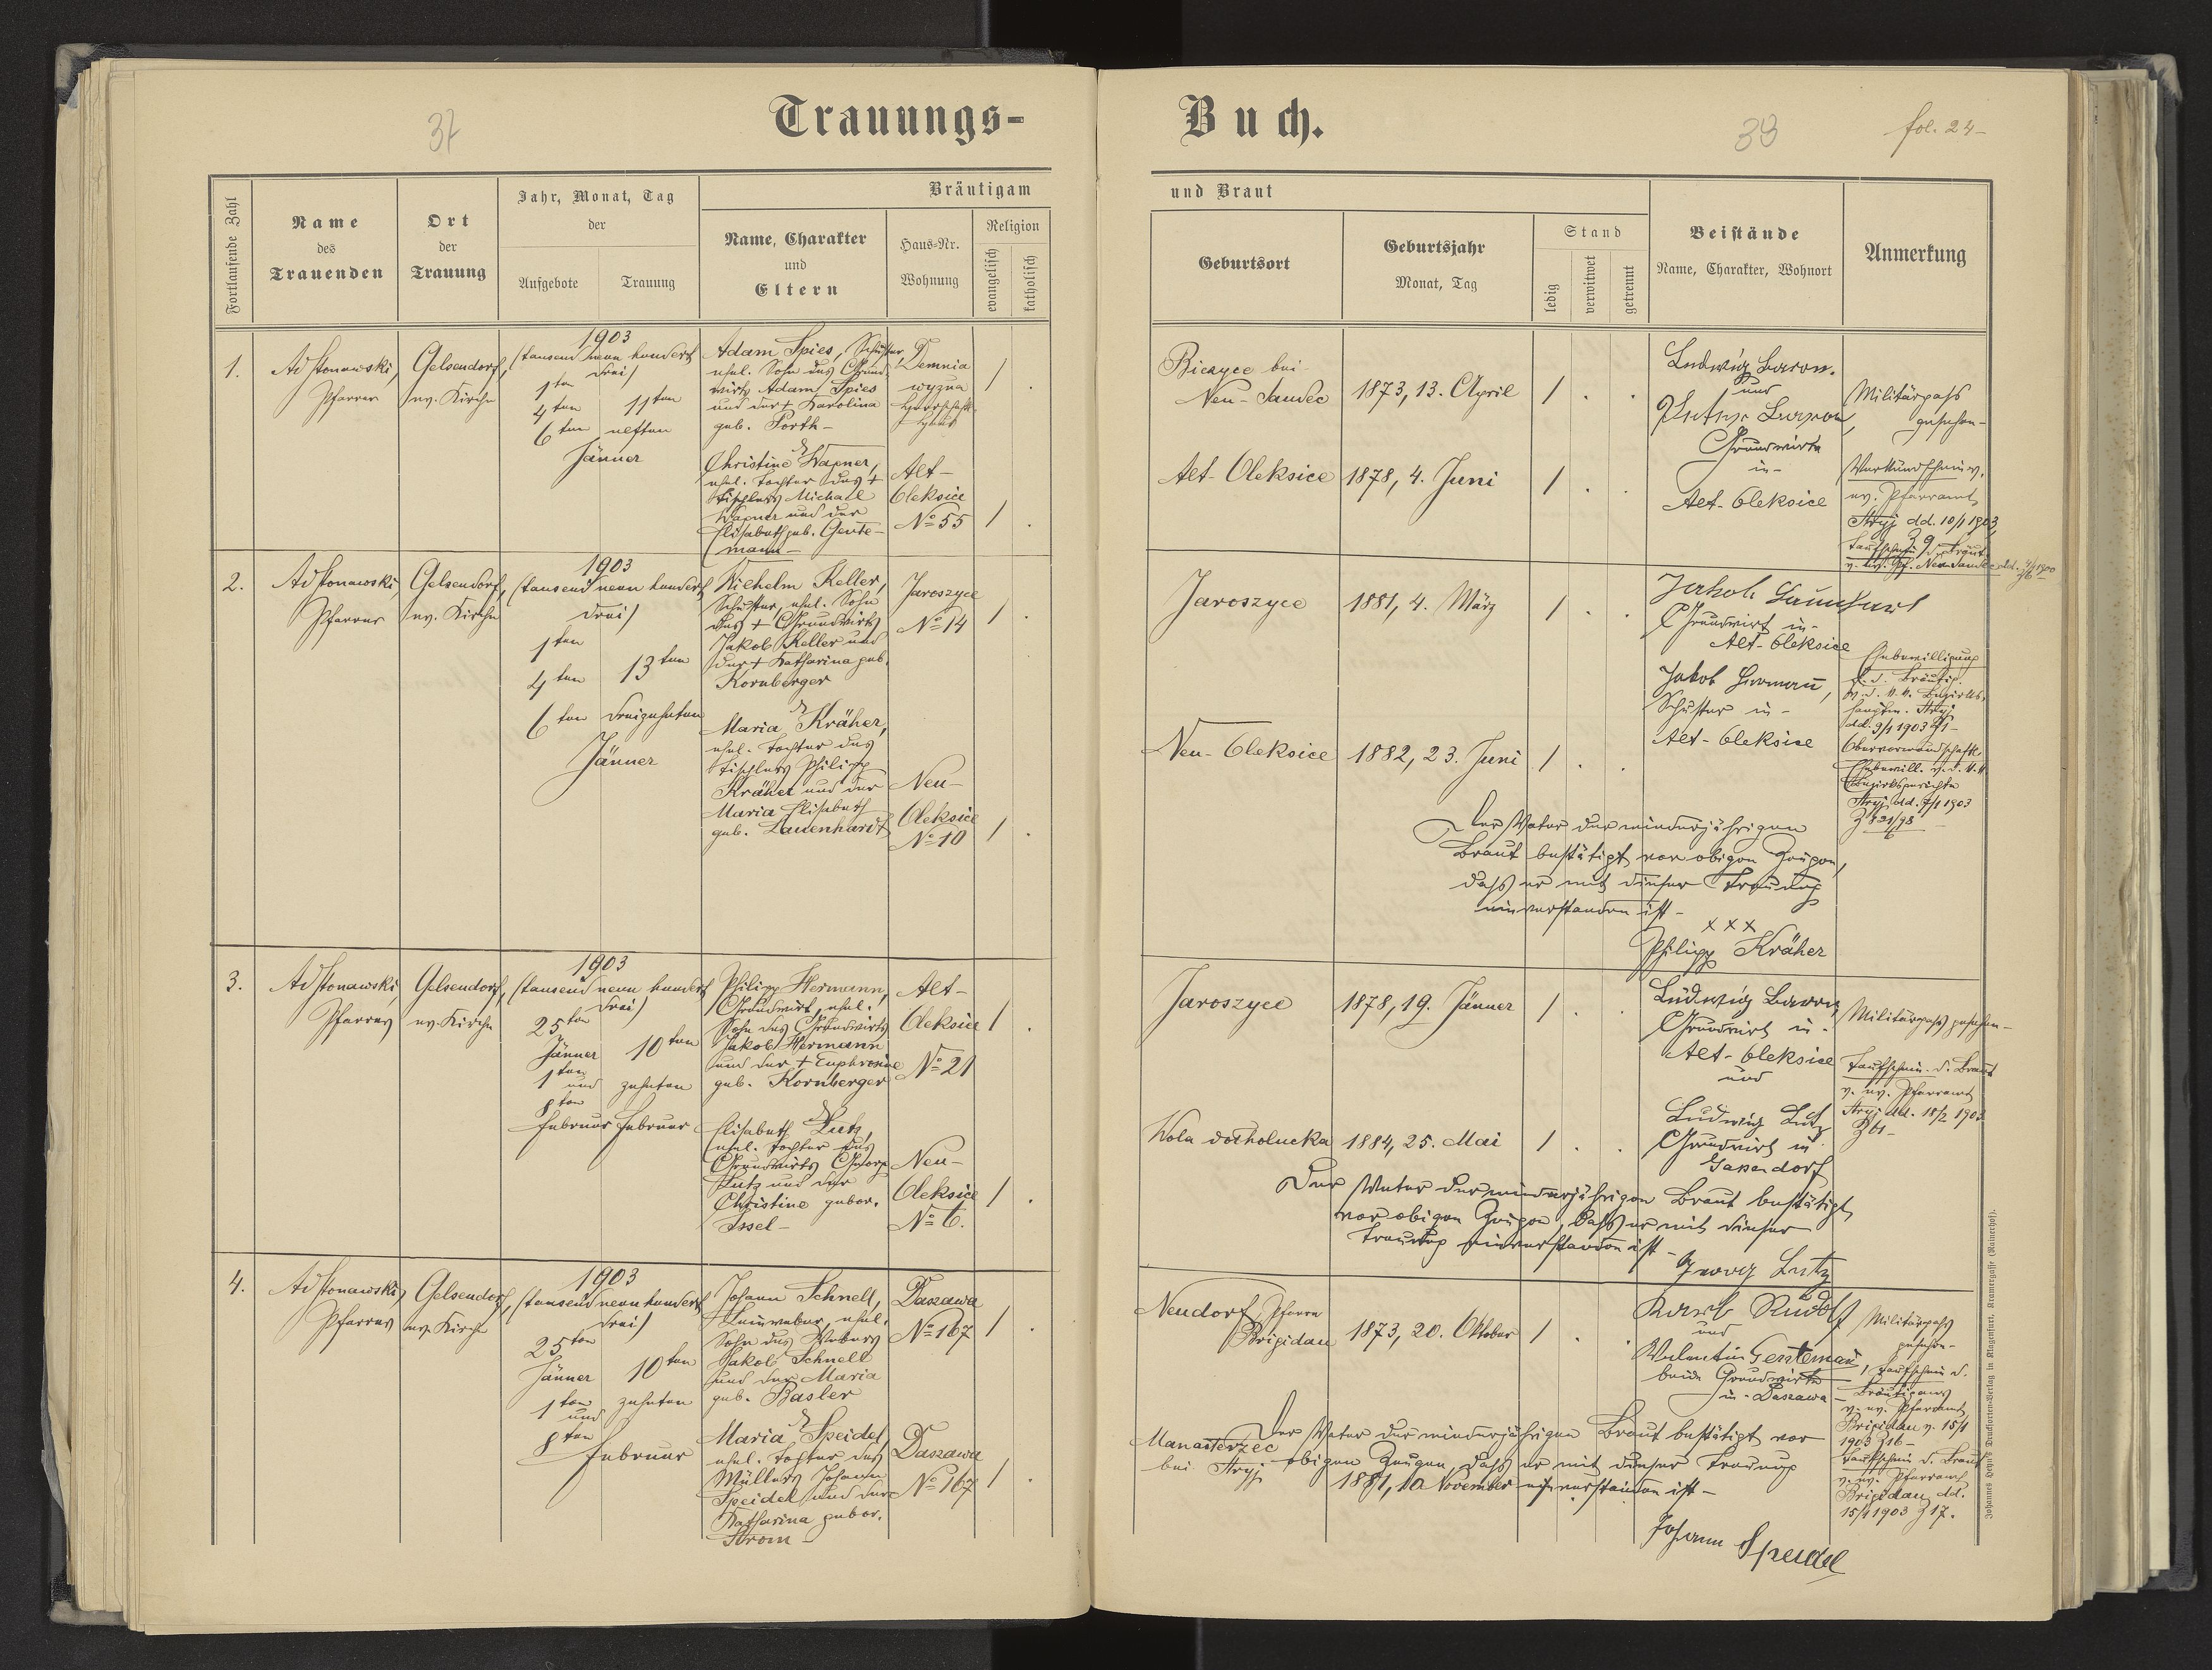 37
Trauungs-
Fortlaufende Zahl
Name
des
Trauenden
Ort
der
Trauung
Jahr, Monat, Tag
der
Aufgebote
Trauung
Bräutigam
Name, Charakter
und
Eltern
Haus-Nr.
Wohnung
Religion
evangelisch
katholisch
1.
Pfarrer
Gelsendorf,
ev. Kirche
1903
(tausend neun hundert
drei)
1ten
4ten 11ten
6ten elften
Jänner
Adam Spies, Schuster,
ehel. Sohn des Grund-
wirts Adam Spies
und der + Karolina
geb. Porth-
&
Christine Wagner,
ehel. Tochter des +
Tischlers Michael
Wagner und der
Elisabeth geb. Gente-
mann-
Demnia
wyzna
/
Alt-
Oleksice
No 55
/
2.
Pfarrer
Gelsendorf,
ev. Kirche
1903
(tausend neun hundert
drei)
1ten
4ten 13ten
6ten dreizehnten
Jänner
Wilhelm Keller,
Schuster, ehel. Sohn
des + Grundwirts
Jakob Keller und
der + Katharina geb.
Kornberger
&
Maria Kräher,
ehel. Tochter des
Tischlers Philipp
Kräher und der
Maria Elisabeth
geb. Lauenhardt
Jaroszyce
No 14
/
Neu-
Oleksice
No 10
/
3.
Pfarrer
Gelsendorf,
ev. Kirche
1903
(tausend neun hundert
drei)
25ten
Jänner 10ten
1ten
und zehnten
8ten
Februar Februar
Philipp Hermann,
Grundwirt, ehel.
Sohn des Grundwirts
Jakob Hermann
und der + Euphrosine
geb. Kornberger
&
Elisabeth Lutz,
ehel. Tochter des
Grundwirts Georg
Lutz und der
Christine gebor.
Issel-
Alt-
Oleksice
No 21
/
Neu-
Oleksice
No 6.
/
4.
Pfarrer
Gelsendorf,
ev. Kirche
1903
(tausend neun hundert
drei)
25ten
Jänner 10ten
1ten zehnten
und
8ten
Februar
Johann Schnell,
Leinweber, ehel.
Sohn des Webers
Jakob Schnell
und der Maria
geb. Basler
&
Maria Speidel,
ehel. Tochter des
Müllers Johann
Speidel und der
Katharina gebor.
Strom-
Daszawa
No 167
/
Daszawa
No 167
/
Buch.
39
fol. 24-
und Braut
Geburtsort
Geburtsjahr
Monat, Tag
Stand
ledig
verwitwet
getrennt
Beistände
Name, Charakter, Wohnort
Anmerkung
Biczyce bei
Neu-Sandec
1873, 13. April
/
Alt-Oleksice
1878, 4. Juni
/
Ludwig Baron.
und
Baron,
Grundwirte
in-
Alt-Oleksice
Militärpaß
gesehen-
ev. Pfarramt
Stryj dd. 10/1 1903,
Jaroszyce
1881, 4. März
/
Neu-Oleksice
1882, 23. Juni
/
Jakob
Grundwirt in-
Alt-Oleksice
Jakob Hermann,
Schuster in-
Alt-Oleksice
Ehebewilligung
f. d. Bräutig.
v. d. k. k. Bezirks-
hauptm. Stryj
dd. 9/1 1903
Ehebewill. v. d. k. k.
Bezirksgerichte
Stryj dd. 7/1 1903
Der Vater der minderjährigen
Braut bestätigt vor obigen Zeugen,
daß er mit dieser Trauung
einverstanden ist-
x x x
Philipp Kräher
Jaroszyce
1878, 19. Jänner
/
Wola dołholucka
1884, 25. Mai
/
Ludwig Baron,
Grundwirt in-
Alt-Oleksice
und
Ludwig Lutz
Grundwirt in
Gassendorf
Militärpaß gesehen-
Taufschein d. Braut
v. ev. Pfarramt
Stryj dd. 18/2 1903
Z 61-
Der Vater der minderjährigen Braut bestätigt
vor obigen Zeugen, daß er mit dieser
Trauung einverstanden ist-
Georg Lutz
Neudorf, Pfarre
Brigidau
1873, 20. Oktober
/
Manasterzec
bei Stryj
1881, 10 November
Rudolf
und
Valentin Gentemann
beide Grundwirte
in-Daszawa-
Militärpaß
gesehen-
Taufschein d.
Bräutigams
v. ev. Pfarramt
Brigidau v. 15/1
1903 Z 16-
Taufschein d. Braut
v. ev. Pfarramt
Brigidau dd.
15/1 1903 Z 17.
Der Vater der minderjährigen Braut bestätigt vor
obigen Zeugen, daß er mit dieser Trauung
einverstanden ist-
Johann Speidel
Johannes Heyn's Drucksortenverlag in Klagenfurt, Kramergasse (Rainerhof).